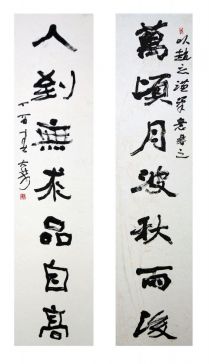 萬頃月波秋雨後
以趙之謙筆意書之
人到無求品自高